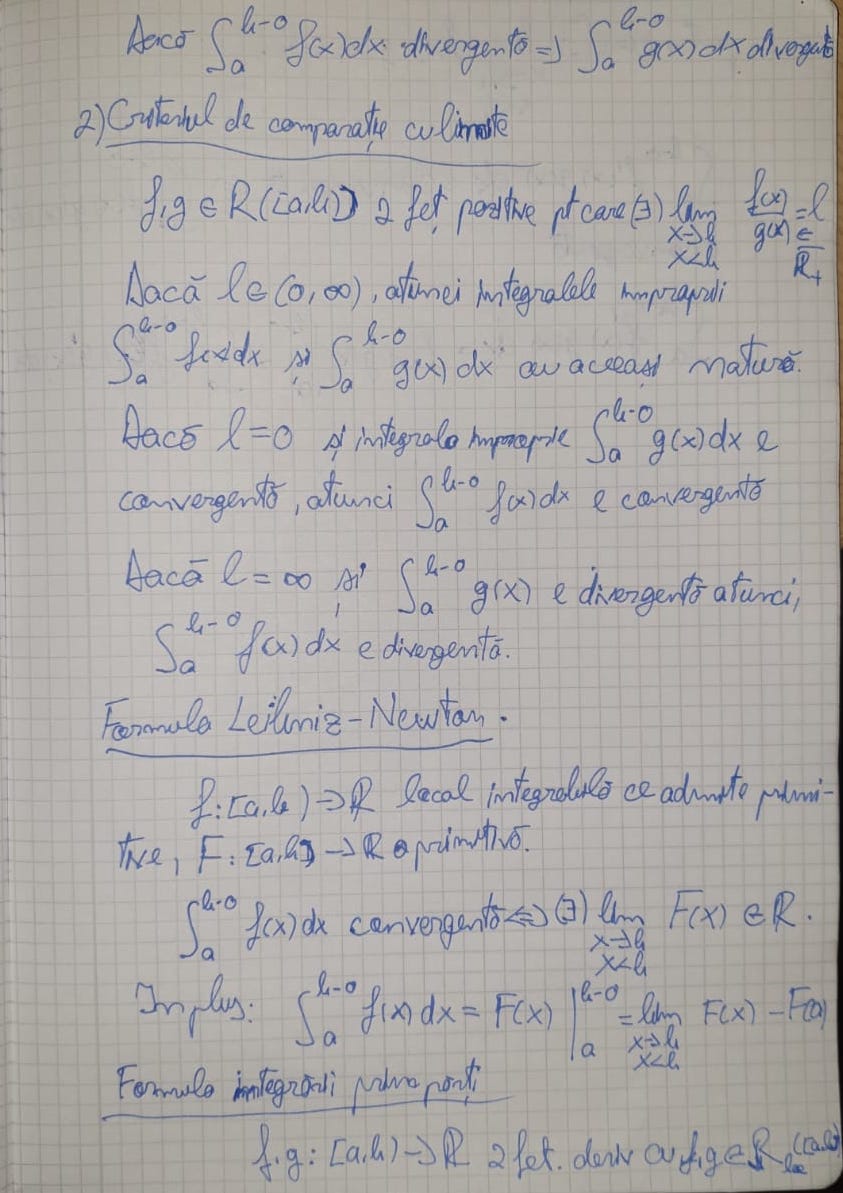 Dacă ∫_a^{b-0} f(x)dx divergentă => ∫_a^{b-0} g(x)dx divergentă
2) Criteriul de comparație cu limite
f,g ∈ R([a,b)) 2 fcț pozitive pt care (∃) lim_{x→b, x<b} f(x)/g(x) = l ∈ R̄₊
Dacă l ∈ (0,∞), atunci integralele improprii
∫_a^{b-0} f(x)dx și ∫_a^{b-0} g(x)dx au aceeași natură.
Dacă l=0 și integrala improprie ∫_a^{b-0} g(x)dx e
convergentă, atunci ∫_a^{b-0} f(x)dx e convergentă
Dacă l=∞ și ∫_a^{b-0} g(x) e divergentă atunci,
∫_a^{b-0} f(x)dx e divergentă.
Formula Leibniz-Newton.
f:[a,b) → R local integrabilă ce admite primi-
tive, F:[a,b) → R o primitivă.
∫_a^{b-0} f(x)dx convergentă <=> (∃) lim_{x→b, x<b} F(x) ∈ R.
In plus: ∫_a^{b-0} f(x)dx = F(x) |_a^{b-0} = lim_{x→b, x<b} F(x) - F(a)
Formula integrării prin părți
f,g : [a,b) → R 2 fct. deriv cu f,g ∈ R_{loc}([a,b))